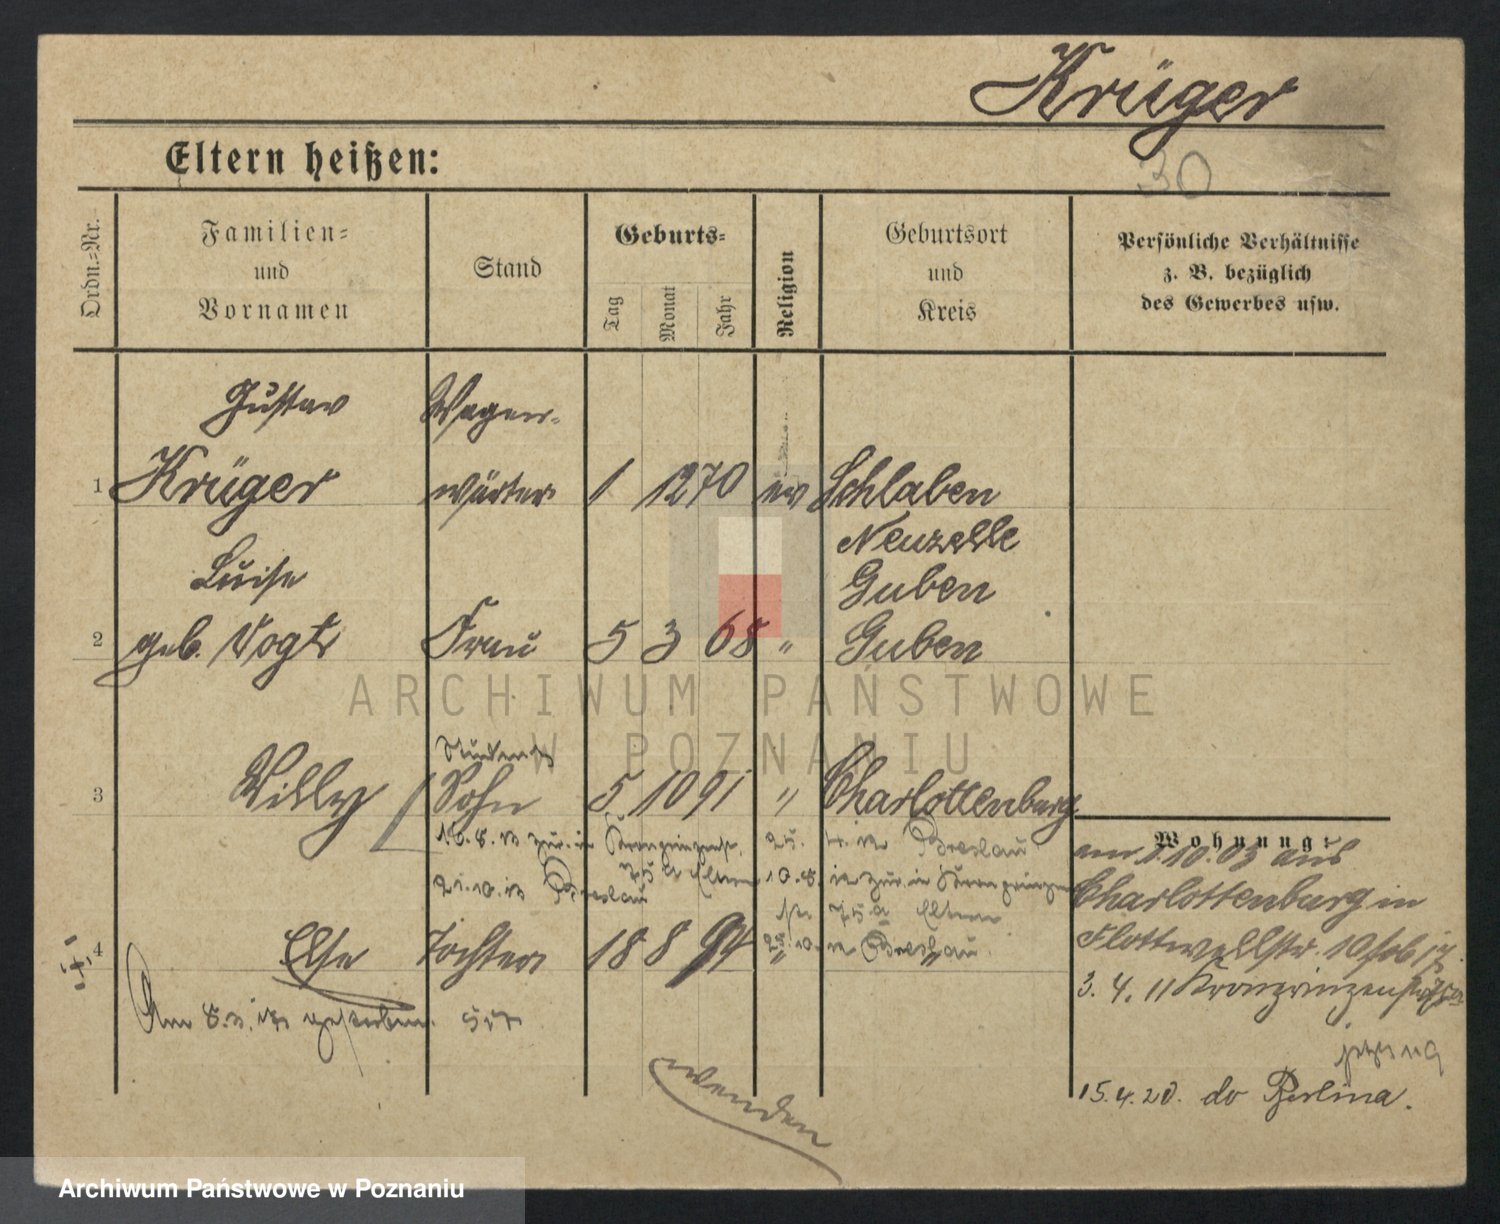 Krüger
30
Eltern heißen:
Ordn.-Nr.
Familien-
und
Vornamen
Stand
Geburts-
Tag
Monat
Jahr
Religion
Geburtsort
und
Kreis
Persönliche Verhältnisse
z. B. bezüglich
des Gewerbes usw.
Gustav Wagen-
1 Krüger wärter 1 12 70 ev Schlaben
Neuzelle
Luise Guben
2 geb. Vogt Frau 5 3 68 " Guben
ARCHIWUM PAŃSTWOWE
W POZNANIU
Student
3 Willy Sohn 5 10 91 " Charlottenburg
Wohnung:
zur. in Kronprinzenstr. 25. Breslau
75a Eltern 10.8. zur. in Kronprinzen
21.10. Breslau
str 75a Eltern
am 1.10.03 aus
Charlottenburg in
4 Else Tochter 18 8 94 Breslau.
Flottwellstr. 10
3. 4. 11 Kronprinzenstr.
Am gestorben.
jetzt
wenden
15.4.20. do Berlina.
Archiwum Państwowe w Poznaniu